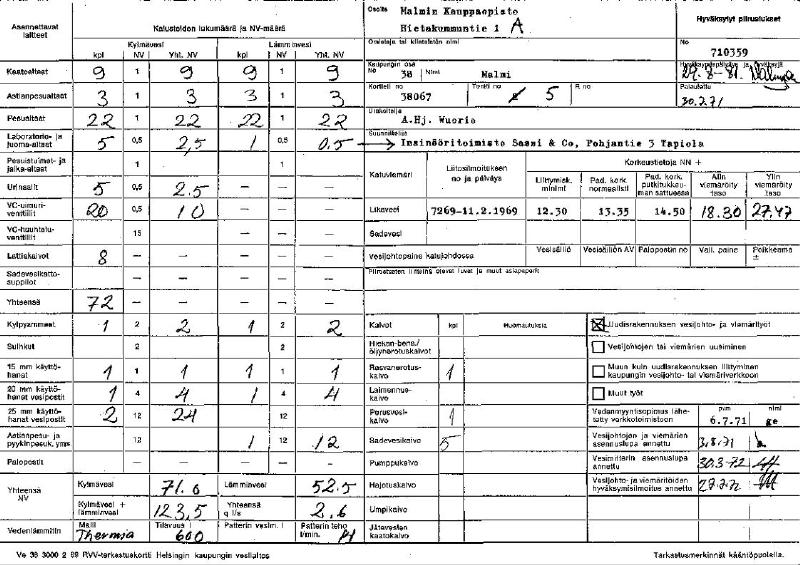 Asennettavat laitteet
Kalustoiden lukumäärä ja NV-määrä
Kylmävesi Lämminvesi
kpl NV Yht. NV kpl NV Yht. NV
Kaatoaltaat 9 1 9 9 1 9
Astianpesualtaat 3 1 3 3 1 3
Pesualtaat 22 1 22 22 1 22
Laboratorio- ja juoma-altaat 5 0,5 2,5 1 0,5 0.5
Pesuistuimet- ja jalka-altaat 1 1
Urinaalit 5 0,5 2.5 — — —
VC-uimuri-venttiilit 20 0,5 10 — — —
VC-huuhtelu-venttiilit 15 — — —
Lattiakaivot 8 — — — — —
Sadevesikatto-suppilot — — — — —
Yhteensä 72 — — — — —
Kylpyammeet 1 2 2 1 2 2
Suihkut 2 2
15 mm käyttö-hanat 1 1 1 1 1 1
20 mm käyttö-hanat vesipostit 1 4 4 1 4 4
25 mm käyttö-hanat vesipostit 2 12 24 12
Astianpesu- ja pyykinpesuk. yms 12 1 12
Palopostit — — — —
Yhteensä NV
Kylmävesi 71.0 Lämminvesi 52.5
Kylmävesi + lämminvesi 123,5 Yhteensä q l/s 2.6
Vedenlämmitin Malli Thermia Tilavuus l 600 Patterin vesim. l Patterin teho l/min.
Ve 38 3000 2 69 RVV-tarkastuskortti Helsingin kaupungin vesilaitos
Osoite Malmin Kauppaopisto
Hietakummuntie 1 A
Omistaja tai kiinteistön nimi
Kaupungin osa No 38 Nimi Malmi
Kortteli no 38067 Tontti no 5 R no
Urakoitsija A.Hj. Wuorio
Suunnittelija Insinööritoimisto Sassi & Co, Pohjantie 3 Tapiola
Hyväksytyt piirustukset
No 710359
Hyväksymispäiväys ja hyväksyjä
Palautettu 30.2.71
Katuviemäri Liitosilmoituksen no ja päiväys Korkeustietoja NN +
Liittymisk. minimi Pad. kork. normaalisti Pad. kork. putkitukkeuman sattuessa Alin viemäröity taso Ylin viemäröity taso
Likavesi 7269-11.2.1969 12.30 13.35 14.50 18.30 27.47
Sadevesi
Vesijohtopaine katujohdossa Vesisäiliö Vesisäiliön AV Palopostin no Vall. paine Poikkeama ±
Piirustusten liitteinä olevat luvat ja muut asiapaperit
Kaivot kpl Huomautuksia
Hiekan-bens./öljynerotuskaivot
Rasvanerotus-kaivo 1
Laimennus-kaivo
Perusvesi-kaivo 1
Sadevesikaivo 5
Pumppukaivo
Hajotuskaivo
Umpikaivo
Jätevesien kaatokaivo
Uudisrakennuksen vesijohto- ja viemärityöt
Vesijohtojen tai viemärien uusiminen
Muun kuin uudisrakennuksen liittyminen kaupungin vesijohto- tai viemäriverkkoon
Muut työt
pvm nimi
Vedenmyyntisopimus lähe-tetty verkkotoimistoon 6.7.71 ge
Vesijohtojen ja viemärien asennuslupa annettu 3.8.71
Vesimittarin asennuslupa annettu 30.3-72
Vesijohto- ja viemäritöiden hyväksymisilmoitus annettu 27.7.72
Tarkastusmerkinnät kääntöpuolella.